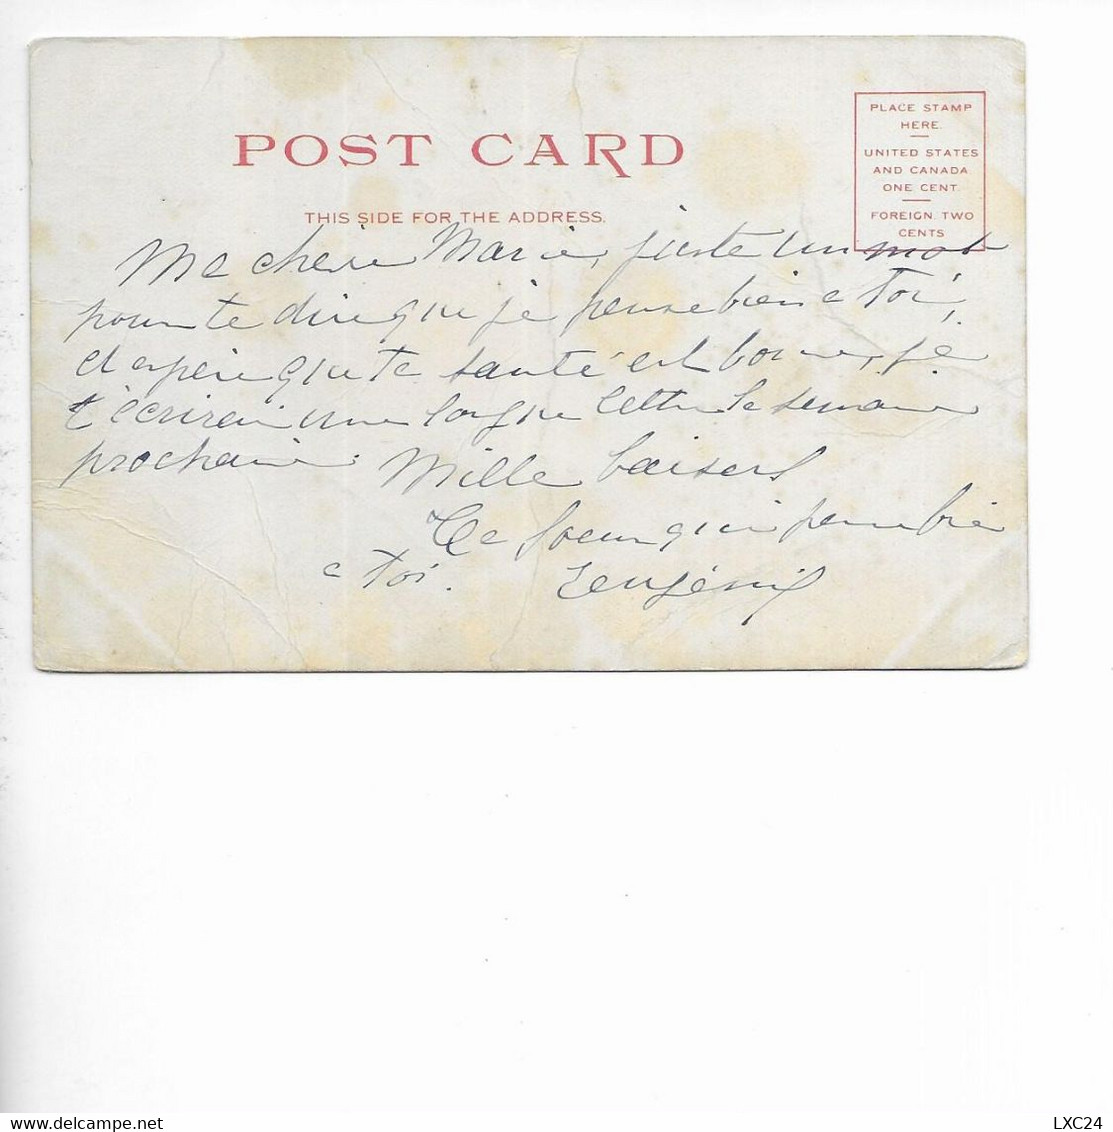 POST CARD
THIS SIDE FOR THE ADDRESS.
PLACE STAMP
HERE
UNITED STATES
AND CANADA
ONE CENT.
FOREIGN. TWO
CENTS
Ma chère Marie, juste un mot
pour te dire que je pense bien a Toi,
et espère que ta santé est bonne, je
t'écrirai une longue lettre la semaine
prochaine. Mille baisers
Ta soeur qui pense bien
a Toi. Eugénie
LXC24